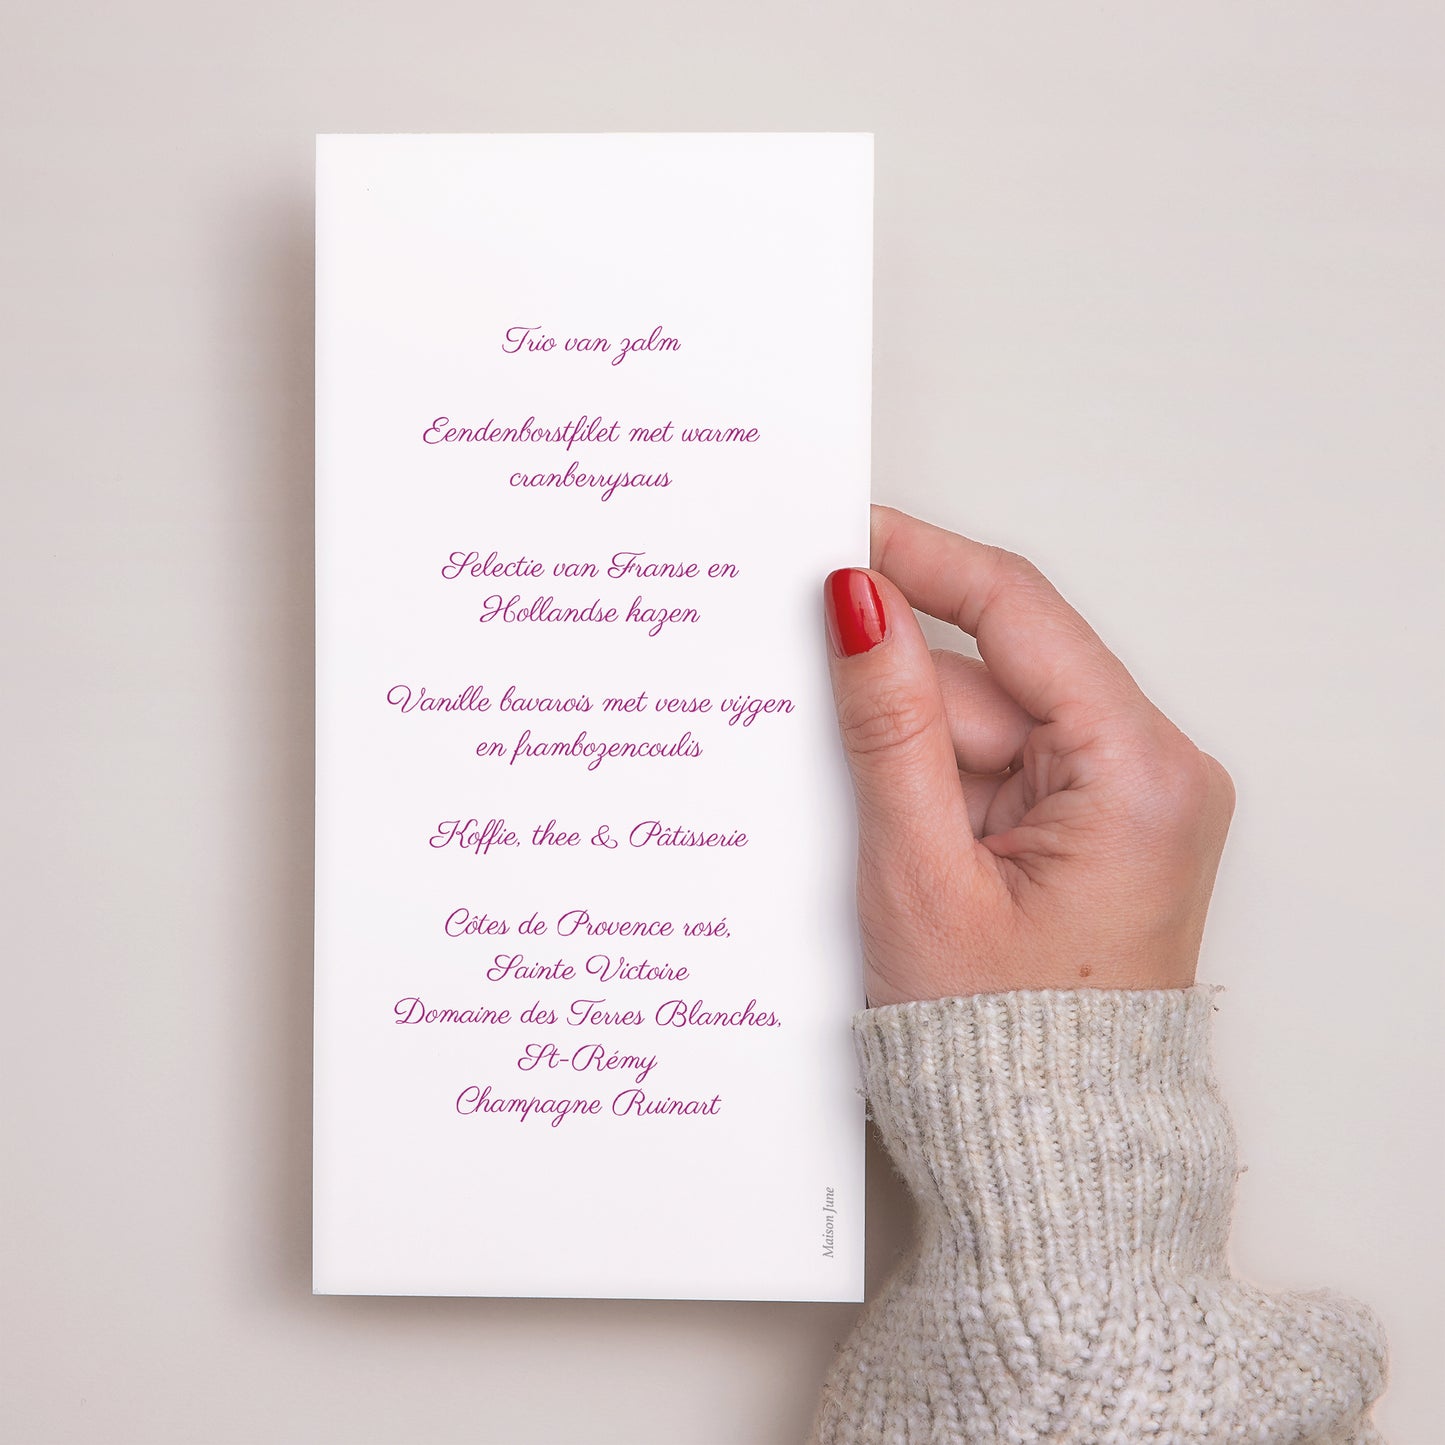 Trio van zalm
Eendenborstfilet met warme
cranberrysaus
Selectie van Franse en
Hollandse kazen
Vanille bavarois met verse vijgen
en frambozencoulis
Koffie, thee & Pâtisserie
Côtes de Provence rosé,
Sainte Victoire
Domaine des Terres Blanches,
St-Rémy
Champagne Ruinart
Maison June